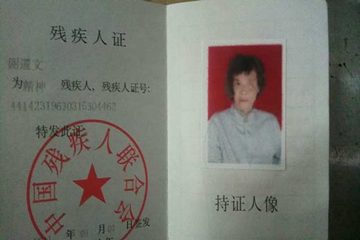 残疾人证
谢道文
为精神 残疾人、残疾人证号:
特发此证
中国残疾人联合会
年 月 日签发
持证人像